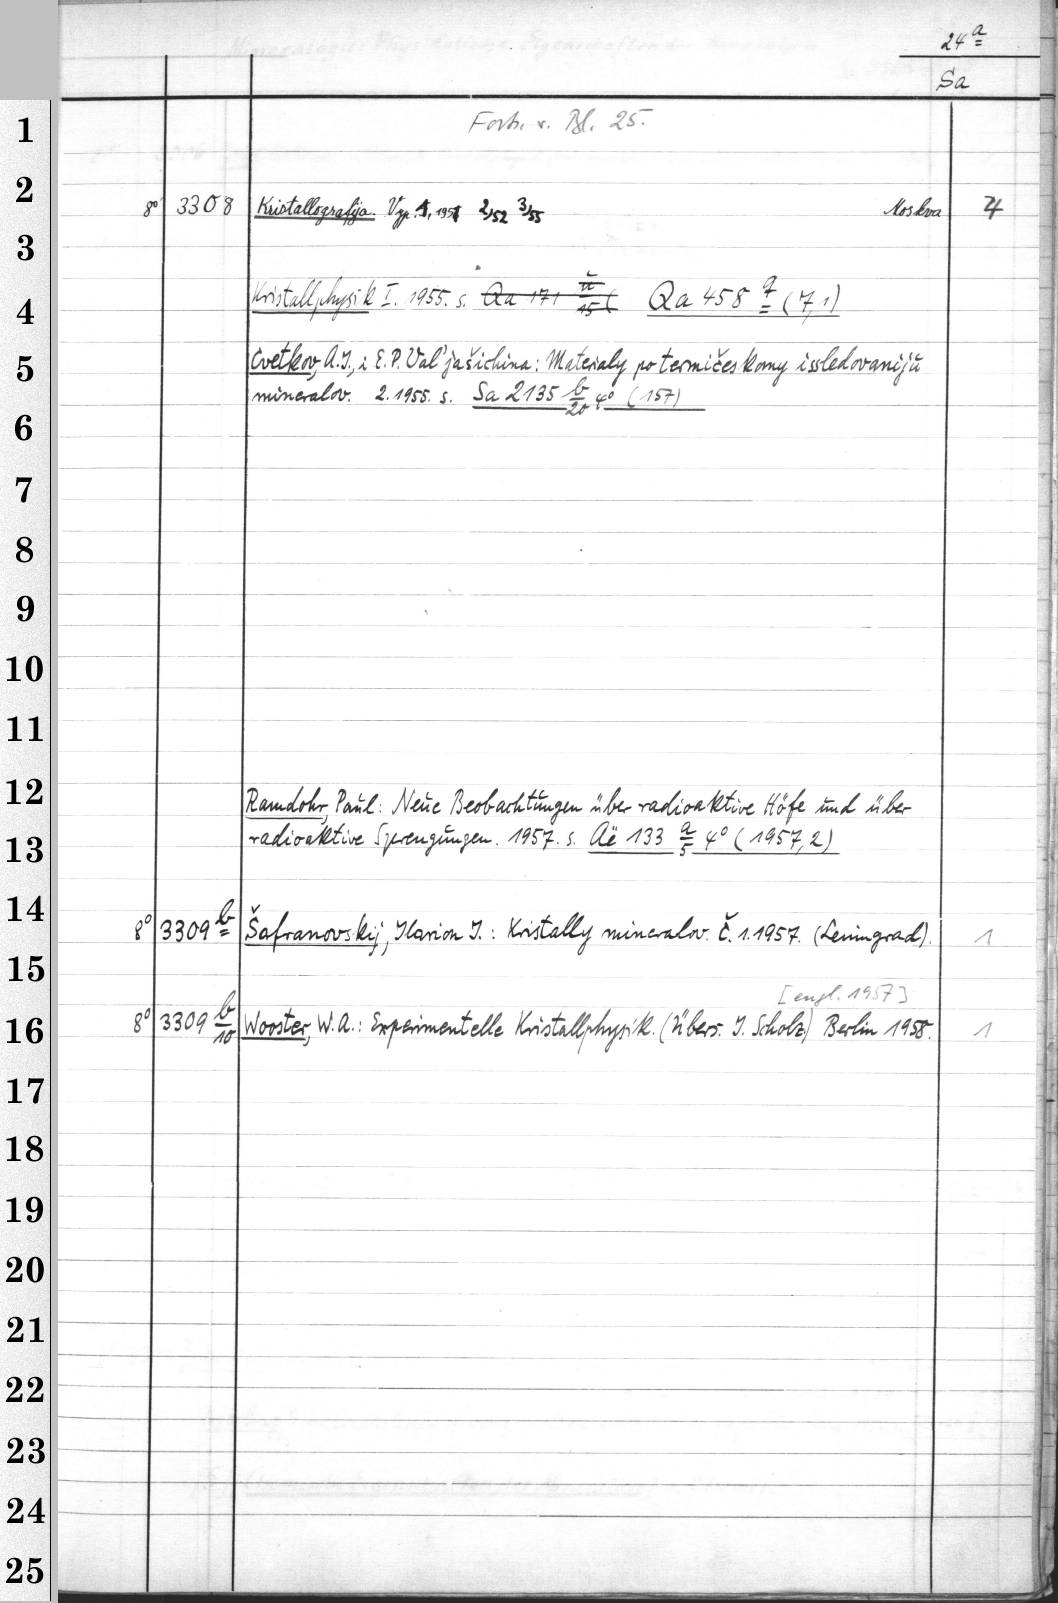 24 a
Sa
Forts. s. Bl. 25.
8° 3308 Kristallografija. Vyp. 1, 1951 2/52 3/55 Moskva 4
Kristallphysik I. 1955. s. Qa 171 ü/15 ( Qa 458 q (7,1)
Cvetkov, A.I., i E.P. Val'jašichina: Materialy po termičeskomy issledovanijü
mineralov. 2. 1955. s. Sa 2135 b/20 4° (157)
Ramdohr, Paul: Neue Beobachtungen über radioaktive Höfe und über
radioaktive Sprengungen. 1957. s. Aë 133 a/5 4° (1957,2)
8° 3309 b Šafranovskij, Ilarion I.: Kristally mineralov. Č. 1. 1957. (Leningrad). 1
[engl. 1957]
8° 3309 b/10 Wooster, W.A.: Experimentelle Kristallphysik. (Übers. I. Scholz) Berlin 1958. 1
1
2
3
4
5
6
7
8
9
10
11
12
13
14
15
16
17
18
19
20
21
22
23
24
25